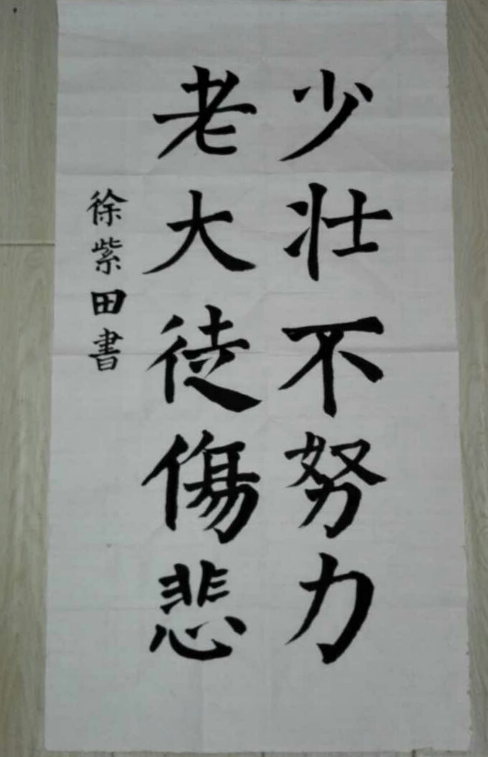 少壮不努力
老大徒傷悲
徐紫田書